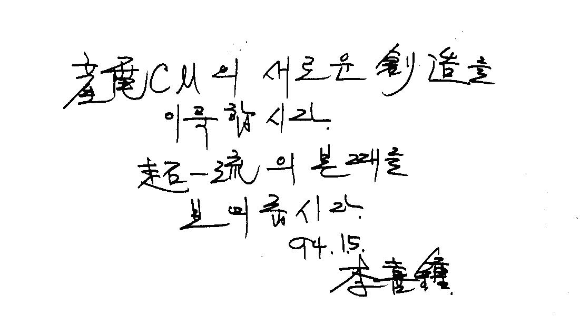 産電CM의 새로운 創造를
이룩합시다.
超一流의 본때를
보여줍시다.
94.15.
李喜鍾